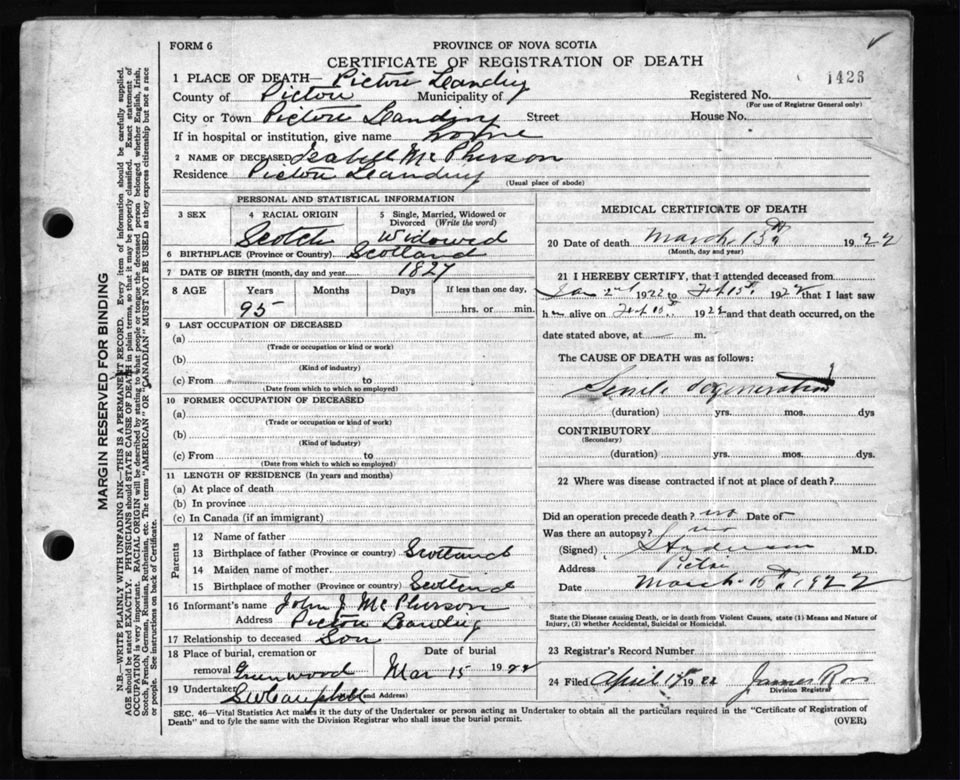 FORM 6
PROVINCE OF NOVA SCOTIA
CERTIFICATE OF REGISTRATION OF DEATH
1426
1 PLACE OF DEATH— Pictou Landing
County of Pictou Municipality of
Registered No.
(For use of Registrar General only)
City or Town Pictou Landing Street House No.
If in hospital or institution, give name home
2 NAME OF DECEASED Isabell McPherson
Residence Pictou Landing
(Usual place of abode)
PERSONAL AND STATISTICAL INFORMATION
3 SEX
4 RACIAL ORIGIN
Scotch
5 Single, Married, Widowed or Divorced (Write the word)
Widowed
6 BIRTHPLACE (Province or Country) Scotland
7 DATE OF BIRTH (month, day and year) 1827
8 AGE Years Months Days If less than one day,
95 hrs. or min.
9 LAST OCCUPATION OF DECEASED
(a)
(Trade or occupation or kind or work)
(b)
(Kind of industry)
(c) From to
(Date from which to which so employed)
10 FORMER OCCUPATION OF DECEASED
(a)
(Trade or occupation or kind or work)
(b)
(Kind of industry)
(c) From to
(Date from which to which so employed)
11 LENGTH OF RESIDENCE (In years and months)
(a) At place of death
(b) In province
(c) In Canada (if an immigrant)
Parents
12 Name of father
13 Birthplace of father (Province or country) Scotland
14 Maiden name of mother
15 Birthplace of mother (Province or country) Scotland
16 Informant's name John J McPherson
Address Pictou Landing
17 Relationship to deceased Son
18 Place of burial, cremation or removal Greenwood
Date of burial
Mar 15 1922
19 Undertaker (and Address)
MEDICAL CERTIFICATE OF DEATH
20 Date of death March 13th 1922
(Month, day and year)
21 I HEREBY CERTIFY, that I attended deceased from
Jan 1922 to Feb 15th 1922 that I last saw
h alive on Feb 15th 1922 and that death occurred, on the
date stated above, at m.
The CAUSE OF DEATH was as follows:
Senile degeneration
(duration) yrs. mos. dys
CONTRIBUTORY
(Secondary)
(duration) yrs. mos. dys.
22 Where was disease contracted if not at place of death?
Did an operation precede death? no Date of
Was there an autopsy? no
(Signed) M.D.
Address Pictou
Date March 15th, 1922
State the Disease causing Death, or in death from Violent Causes, state (1) Means and Nature of
Injury, (2) whether Accidental, Suicidal or Homicidal.
23 Registrar's Record Number
24 Filed April 1922 James Ross
Division Registrar
SEC. 46—Vital Statistics Act makes it the duty of the Undertaker or person acting as Undertaker to obtain all the particulars required in the "Certificate of Registration of
Death" and to fyle the same with the Division Registrar who shall issue the burial permit.
(OVER)
MARGIN RESERVED FOR BINDING
N.B.—WRITE PLAINLY WITH UNFADING INK—THIS IS A PERMANENT RECORD. Every item of information should be carefully supplied.
AGE should be stated EXACTLY. PHYSICIANS should STATE CAUSE OF DEATH in plain terms, so that it may be properly classified. Exact statement of
OCCUPATION is very important. RACIAL ORIGIN will be described by stating to what people or tongue the deceased person belonged whether English, Irish,
Scotch, French, German, Russian, Ruthenian, etc. The terms "AMERICAN" OR "CANADIAN" MUST NOT BE USED as they express citizenship but not a race
or people. See instructions on back of Certificate.